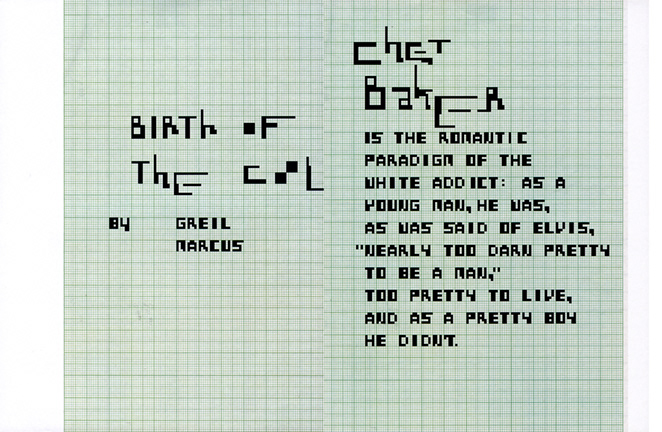 BIRTh OF
The COOL
BY GREIL
MARCUS
cheT
BakER
IS THE ROMANTIC
PARADIGM OF THE
WHITE ADDICT: AS A
YOUNG MAN, HE WAS,
AS WAS SAID OF ELVIS,
"NEARLY TOO DARN PRETTY
TO BE A MAN,"
TOO PRETTY TO LIVE,
AND AS A PRETTY BOY
HE DIDNT.